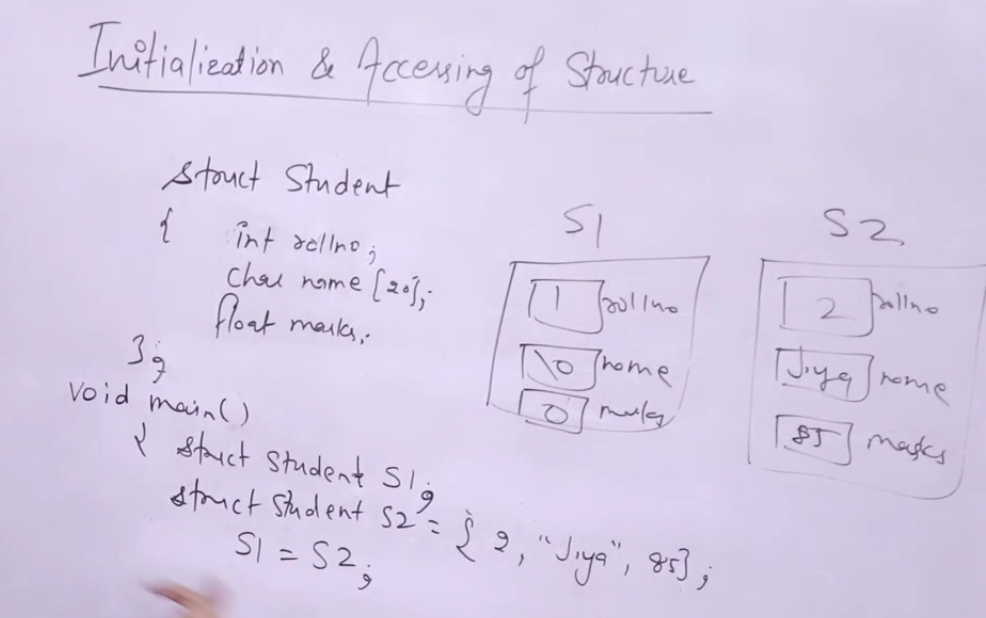 Initialization & Accessing of Structure
struct Student
{ int rollno;
char name [20];
float marks;
};
void main()
{ struct Student S1;
struct Student S2 = { 2, "Jiya", 85};
S1 = S2;
S1
1 rollno
\0 name
0 marks
S2
2 rollno
Jiya name
85 marks